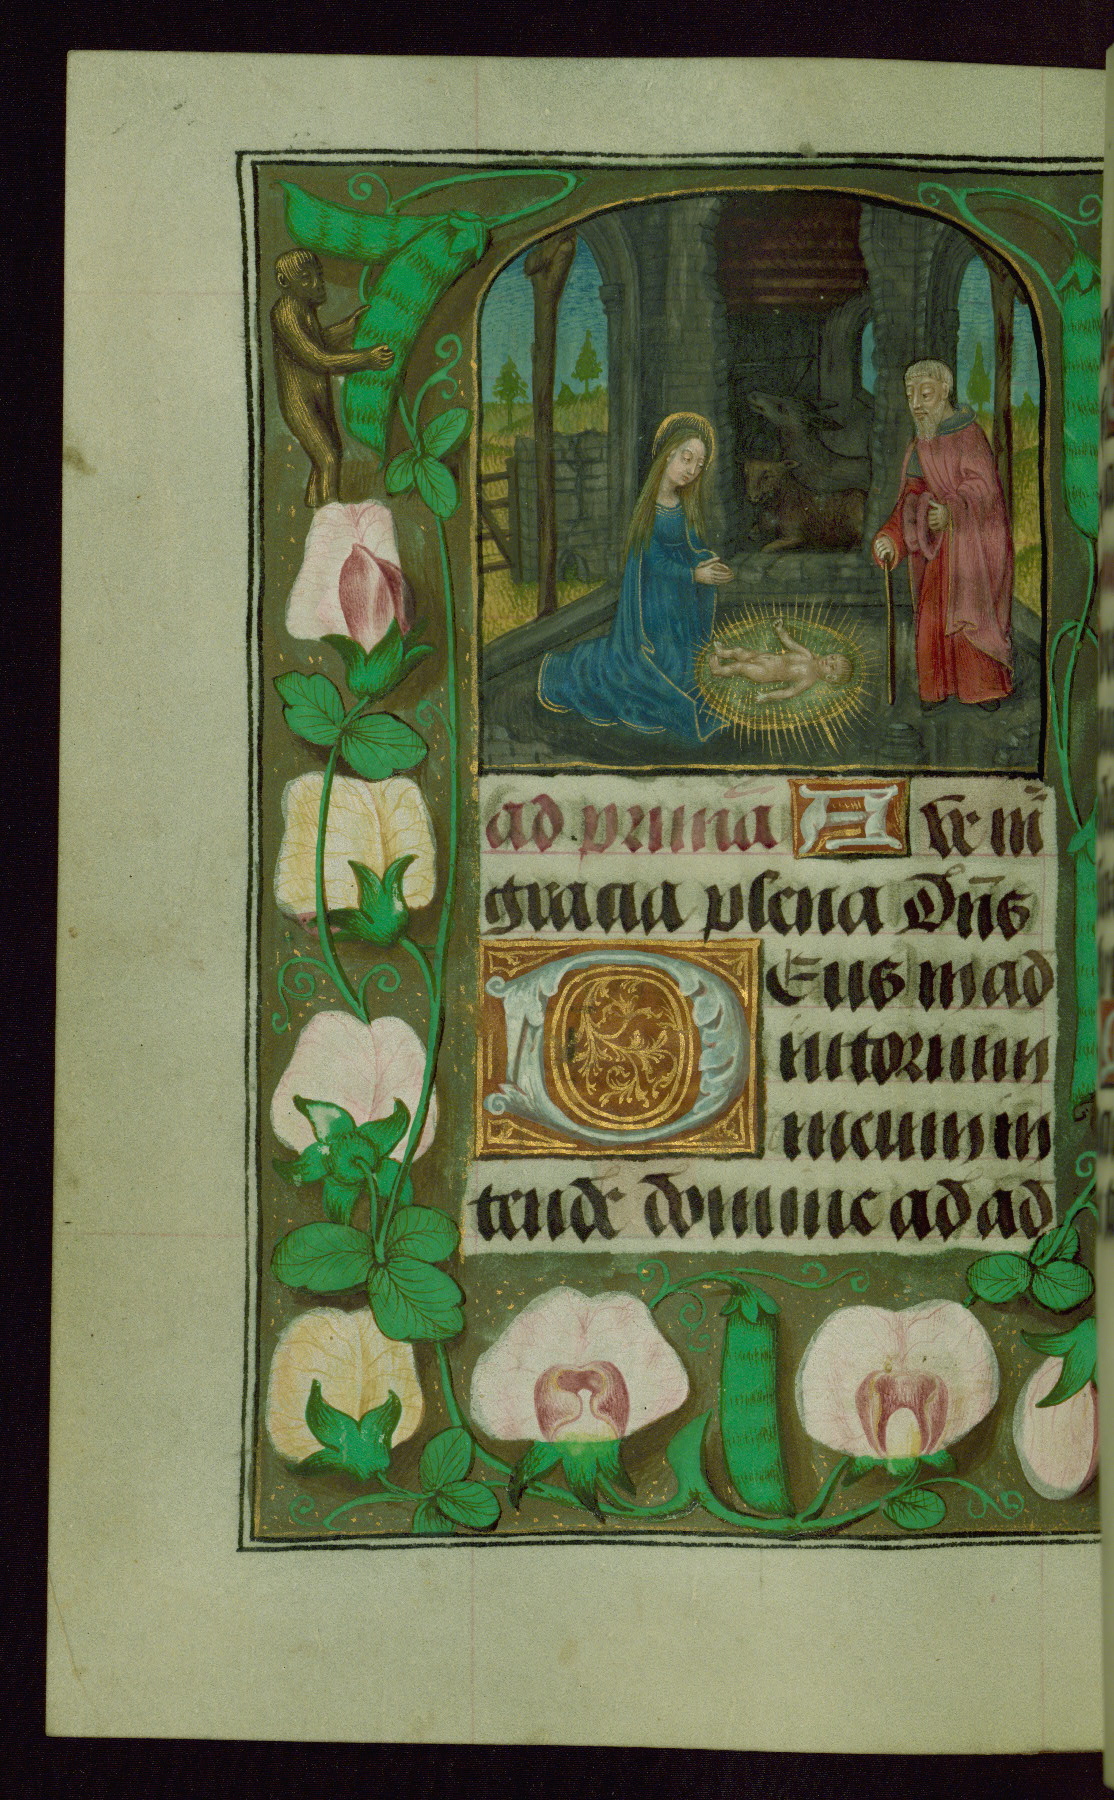 ad primā Aue mͣ
gracia plena Dn̄s
DEus in ad
iutorium
meum in
tende domine ad ad